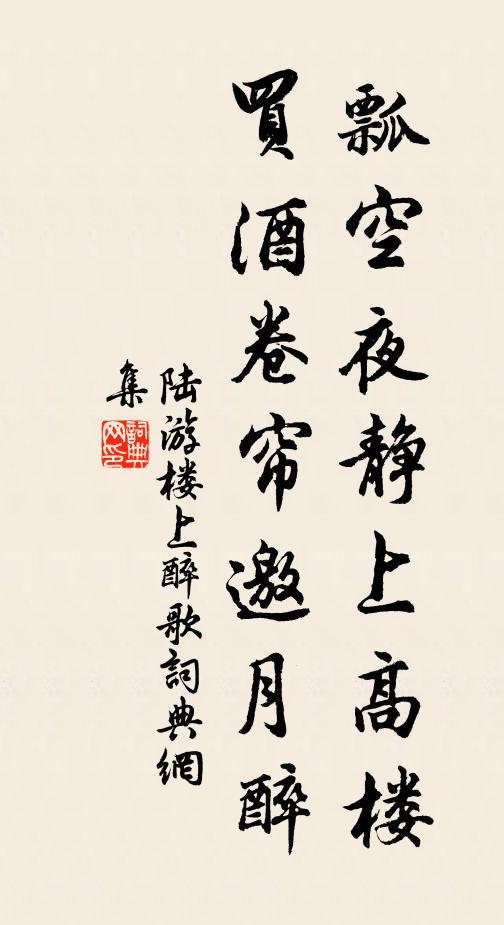 瓢空夜静上高楼
買酒卷帘邀月醉
陆游楼上醉歌詞典網
集
詞典
网印